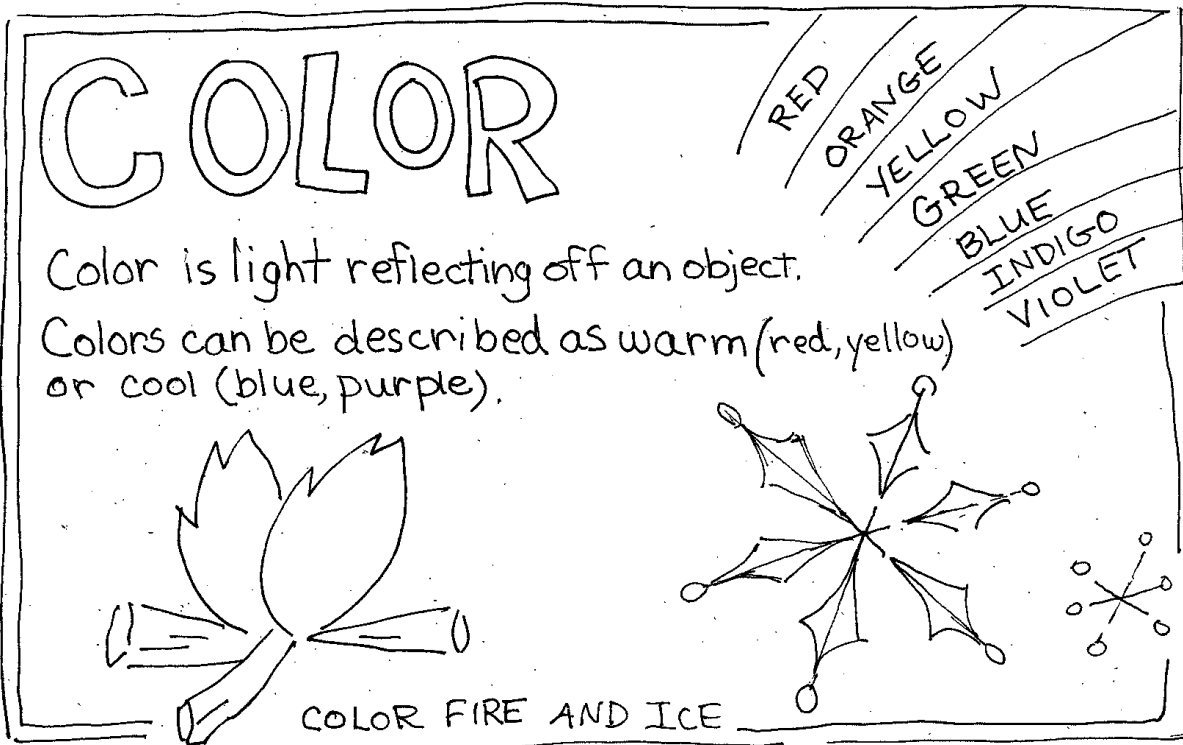 COLOR
RED
ORANGE
YELLOW
GREEN
BLUE
INDIGO
VIOLET
Color is light reflecting off an object.
Colors can be described as warm (red, yellow)
or cool (blue, purple).
COLOR FIRE AND ICE